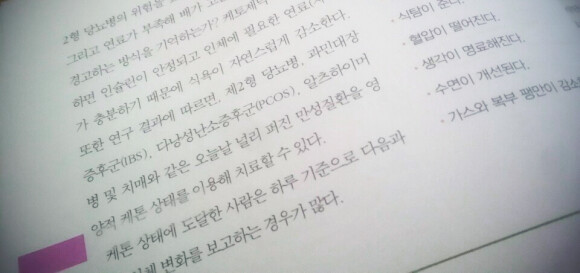 2형 당뇨병의 위험을
그리고 연료가 부족해 배가 고
경고하는 방식을 기억하는가? 케토제닉
하면 인슐린이 안정되고 인체에 필요한 연료
가 충분하기 때문에 식욕이 자연스럽게 감소한다.
또한 연구 결과에 따르면, 제2형 당뇨병, 과민대장
증후군(IBS), 다낭성난소증후군(PCOS), 알츠하이머
병 및 치매와 같은 오늘날 널리 퍼진 만성질환을 영
양적 케톤 상태를 이용해 치료할 수 있다.
케톤 상태에 도달한 사람은 하루 기준으로 다음과
변화를 보고하는 경우가 많다.
· 식탐이 준다.
· 혈압이 떨어진다.
· 생각이 명료해진다.
· 수면이 개선된다.
· 가스와 복부 팽만이 감소